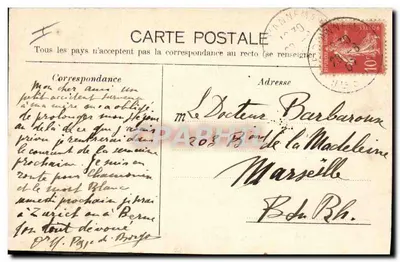 CARTE POSTALE
Tous les pays n'acceptent pas la correspondance au recto (se renseigner
Correspondance
Adresse
Mon cher ami un
petit accident survenu
à ma mère m'a obligé
de prolonger mon séjour
au delà de ce que j'avais
prévu je rentrerai dans
le courant de la semaine
prochaine. Je suis en
route pour Chamonix
et le Mont Blanc
samedi prochain je serai
à Zurich ou à Berne
ton tout dévoué
Le Docteur Barbaroux
203 Bd de la Madeleine
Marseille
B du Rh.
10